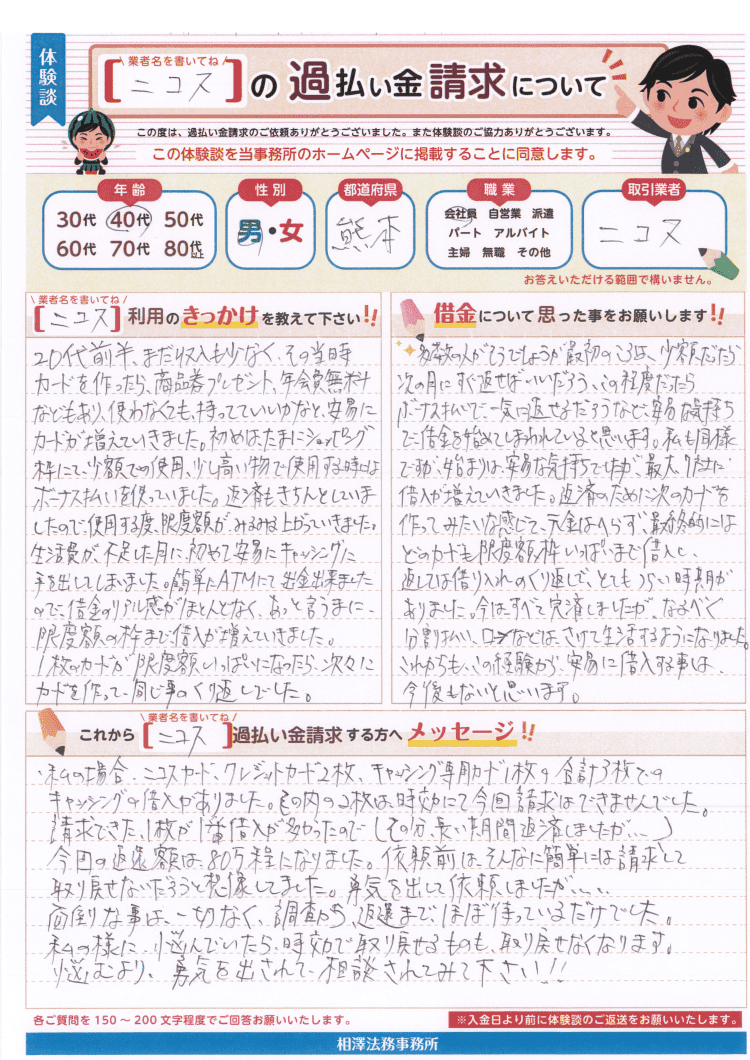 体験談
業者名を書いてね
【ニコス】の過払い金請求について
この度は、過払い金請求のご依頼ありがとうございました。また体験談のご協力ありがとうございます。
この体験談を当事務所のホームページに掲載することに同意します。
年齢
30代 40代 50代
60代 70代 80代以上
性別
男・女
都道府県
熊本
職業
会社員 自営業 派遣
パート アルバイト
主婦 無職 その他
取引業者
ニコス
お答えいただける範囲で構いません。
業者名を書いてね
【ニコス】利用のきっかけを教えて下さい!!
20代前半、まだ収入も少なく、その当時
カードを作ったら、商品券プレゼント、年会費無料
などもあり、使わなくても、持っていていいかなと、安易に
カードが増えていきました。初めは、たまにショッピング
枠にて、少額での使用、少し高い物で使用する時は
ボーナス払いを使っていました。返済もきちんとしていま
したので使用する度、限度額が、みるみる上がっていきました。
生活費が不足した月に、初めて安易にキャッシングに
手を出してしまいました。簡単にATMにて出金出来ました
ので、借金のリアル感がほとんどなく、あっと言うまに、
限度額の枠まで借入が増えていきました。
1枚のカードが限度額いっぱいになったら、次々に
カードを作って、同じ事のくり返しでした。
借金について思った事をお願いします!!
多数の人がそうでしょうが最初のころは、少額だから
次の月にすぐ返せばいいだろう、この程度だったら
ボーナス払いで、一気に返せるだろうなど、安易な気持ち
で借金を始めてしまわれていると思います。私も同様
ですが、始まりは、安易な気持ちでしたが、最大7社に
借入が増えていきました。返済のために次のカードを
作ってみたいな感じで、元金はへらず、最終的には
どのカードも限度額枠いっぱいまで借入し、
返しては借り入れのくり返しで、とてもつらい時期が
ありました。今は、すべて完済しましたが、なるべく
分割払い、ローンなどは、さけて生活するようになりました。
これからも、この経験から、安易に借入する事は、
今後もないと思います。
業者名を書いてね
これから【ニコス】過払い金請求する方へメッセージ!!
私の場合、ニコスカード、クレジットカード2枚、キャッシング専用カード1枚の合計3枚での
キャッシングの借入がありました。その内の2枚は、時効にて今回請求はできませんでした。
請求できた、1枚が1番借入が多かったので(その分、長い期間返済しましたが…)
今回の返還額は、80万程になりました。依頼前は、そんなに簡単には請求して
取り戻せないだろうと想像してました。勇気を出して依頼しましたが、、、、
面倒な事は、一切なく、調査から返還まで、ほぼ待っているだけでした。
私の様に、悩んでいたら、時効で取り戻せるものも、取り戻せなくなります。
悩むより、勇気を出されて、相談されてみて下さい!!
各ご質問を150～200文字程度でご回答お願いいたします。
※入金日より前に体験談のご返送をお願いいたします。
相澤法務事務所